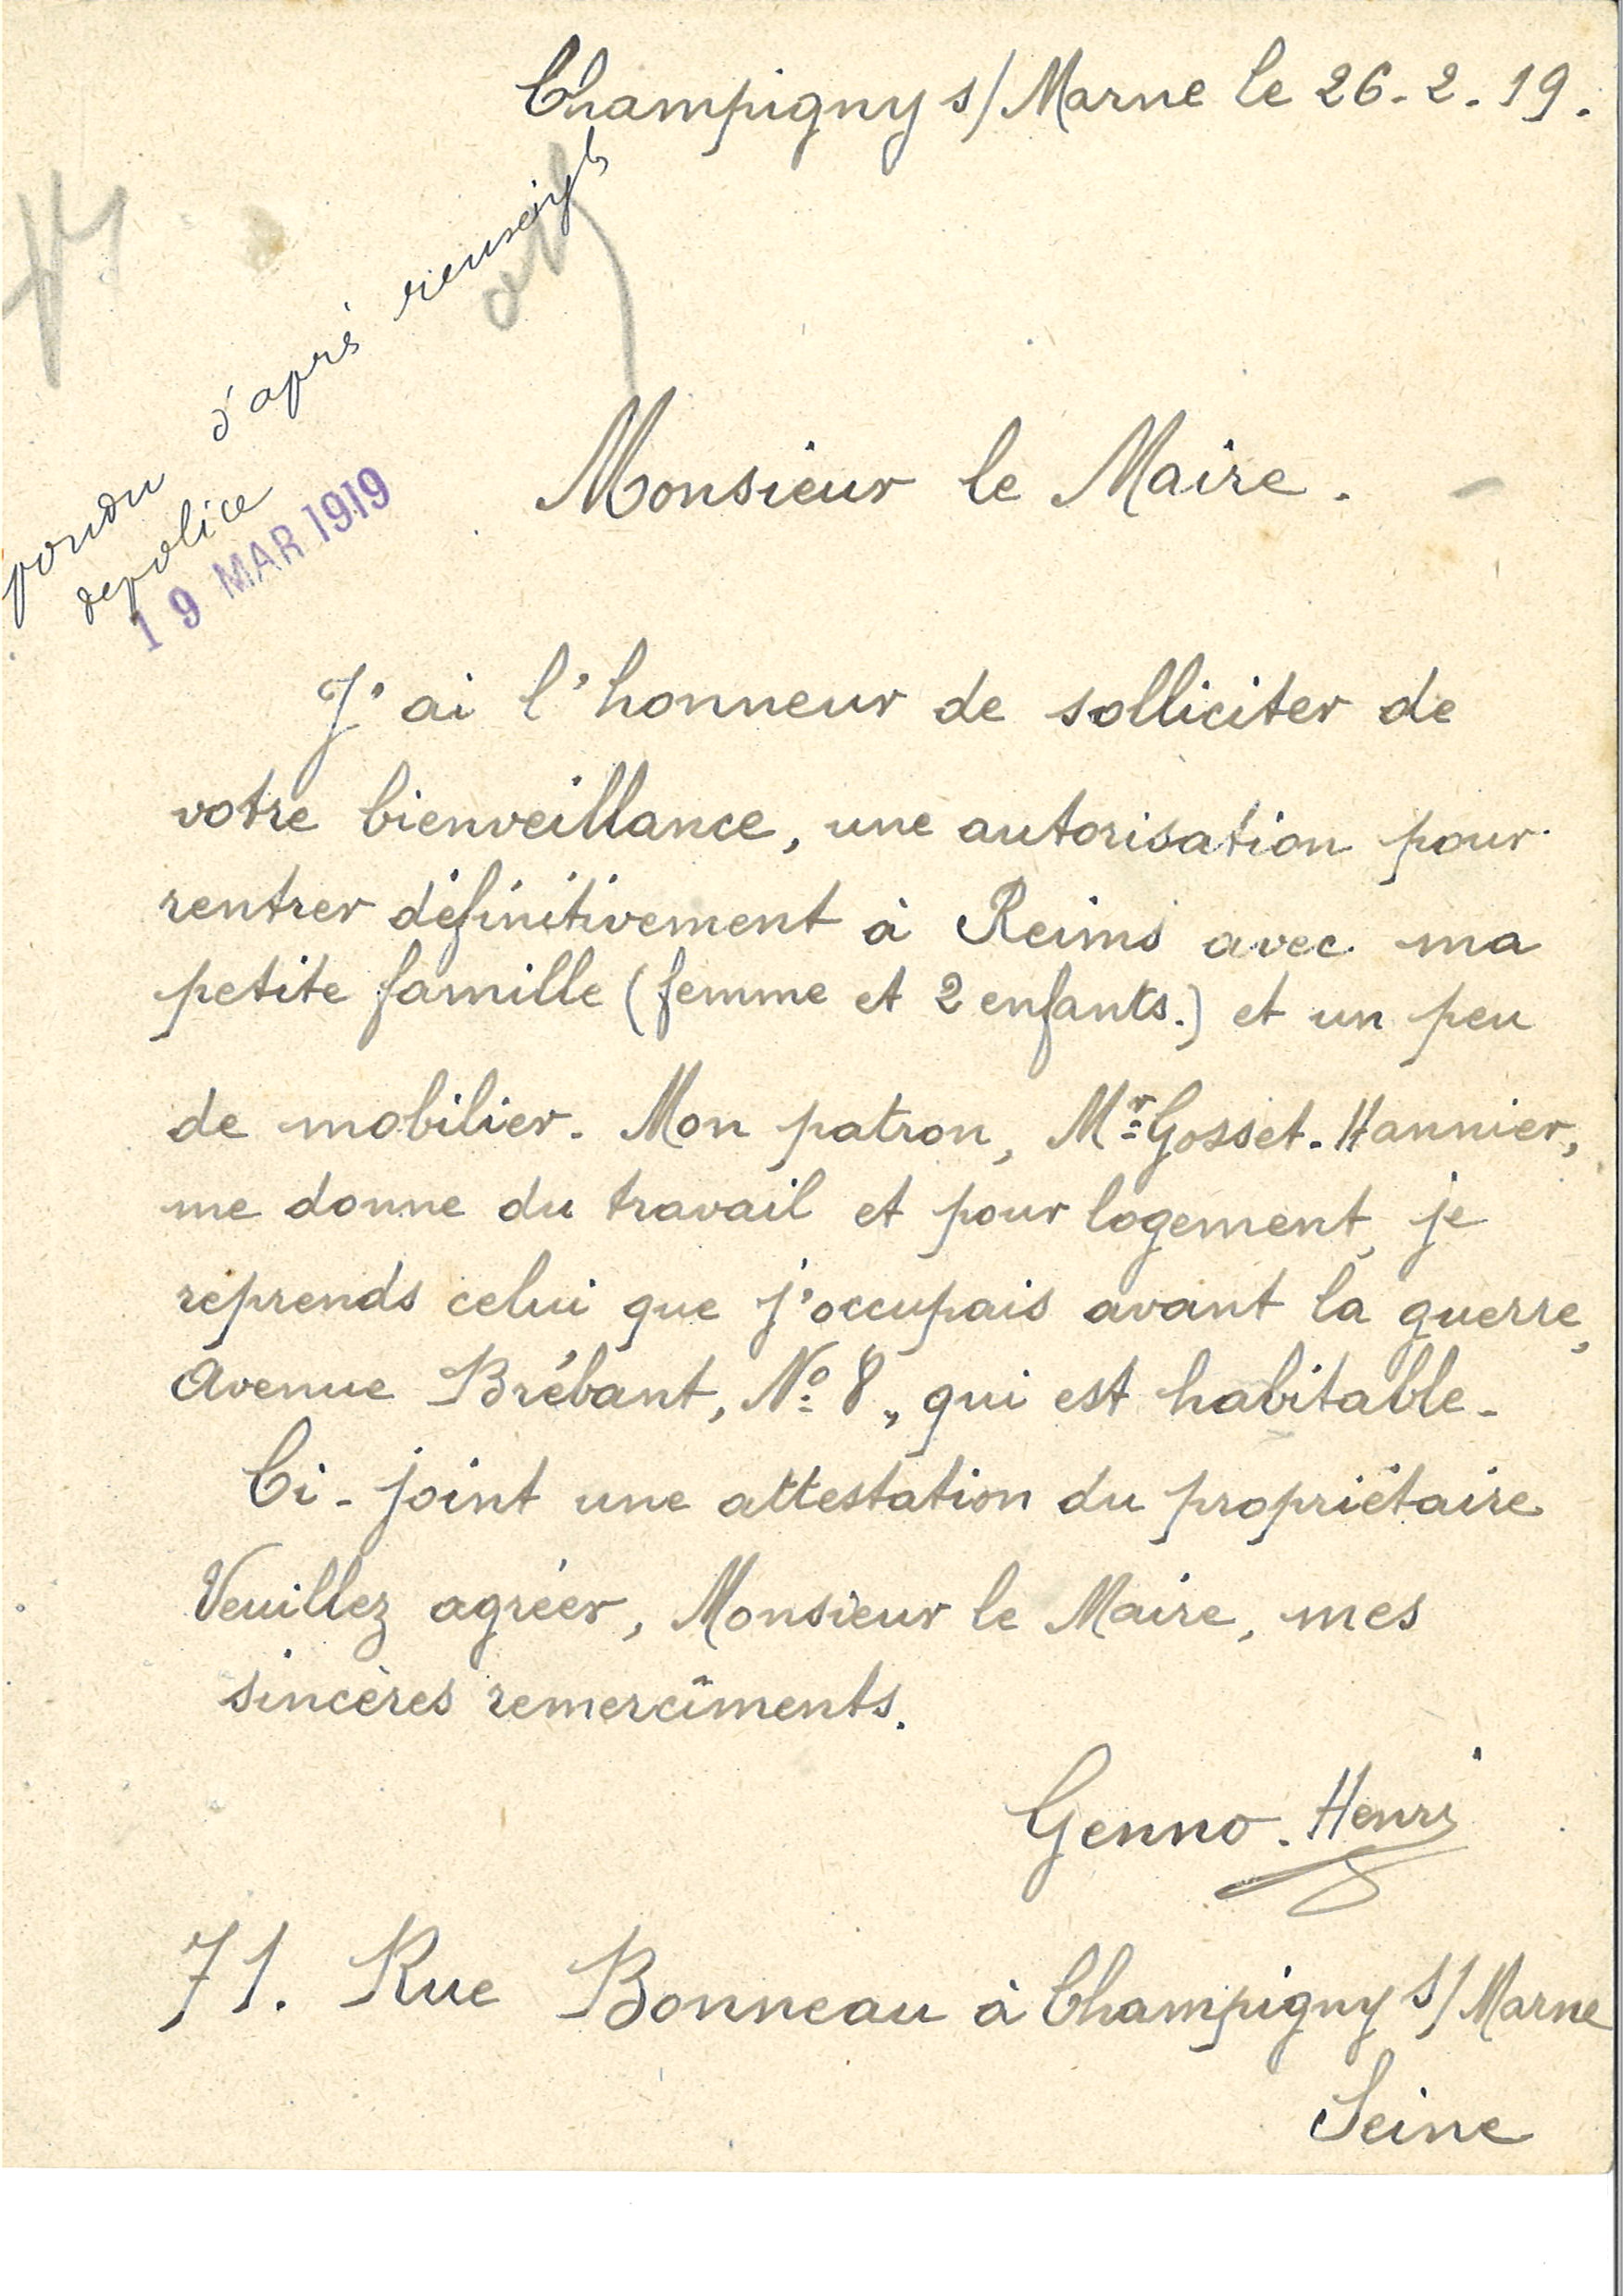 Champigny s/ Marne le 26-2-19.
pondu d'après renseigts
de police
19 MAR 1919
Monsieur le Maire.
J'ai l'honneur de solliciter de
votre bienveillance, une autorisation pour
rentrer définitivement à Reims avec ma
petite famille (femme et 2 enfants.) et un peu
de mobilier. Mon patron, Mr Gosset-Hannier,
me donne du travail et pour logement, je
reprends celui que j'occupais avant la guerre,
Avenue Brébant, No 8, qui est habitable.
Ci-joint une attestation du propriétaire
Veuillez agréer, Monsieur le Maire, mes
sincères remercîments.
Genno. Henri
71. Rue Bonneau à Champigny s/ Marne
Seine